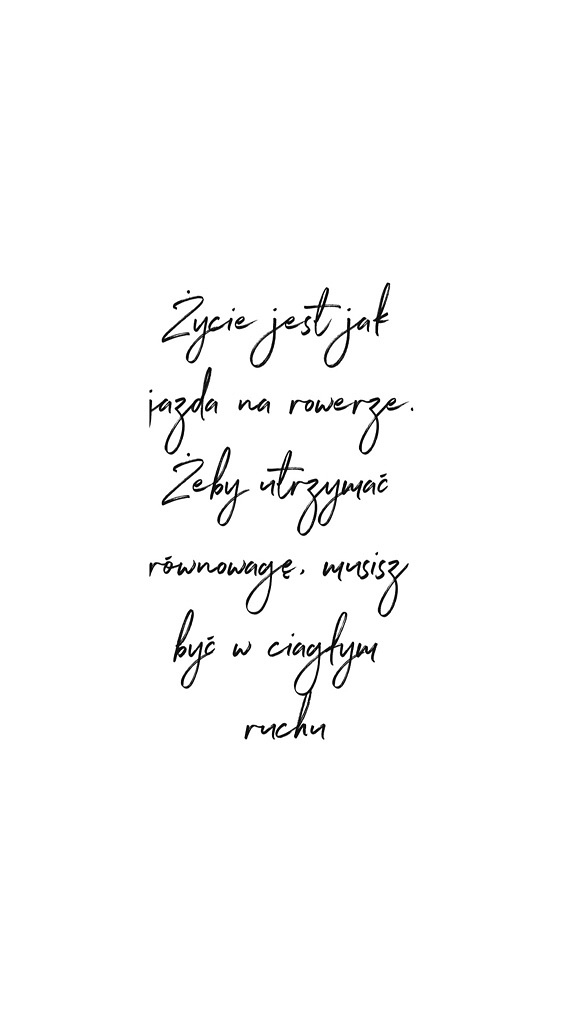 Życie jest jak
jazda na rowerze.
Żeby utrzymać
równowagę, musisz
być w ciagłym
ruchu